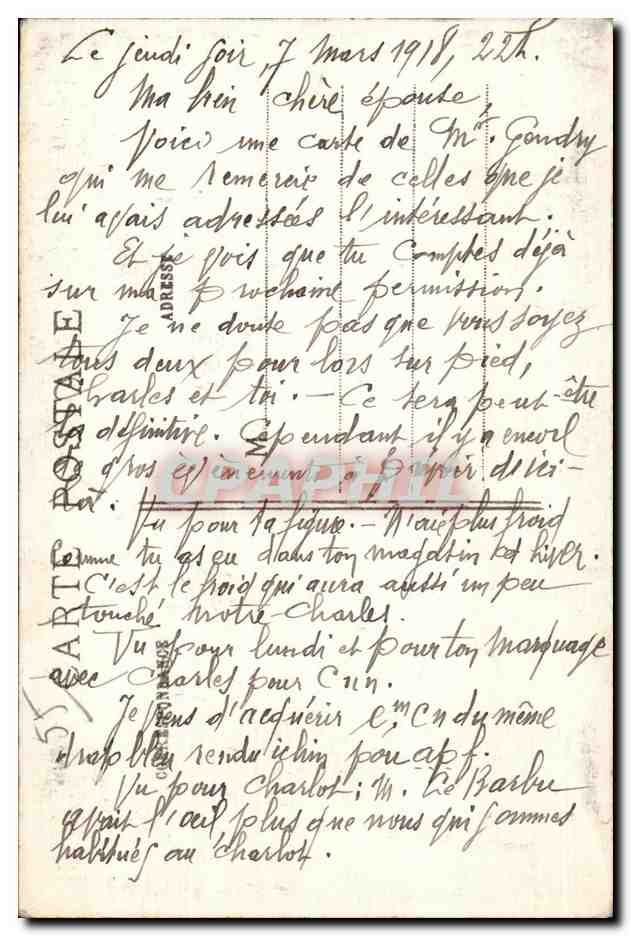 Le jeudi soir, 7 Mars 1918, 22h.
Ma bien chère épouse,
Voici une carte de Mr. Gendry
qui me remercie de celles que je
lui avais adressées l'intéressant.
Et je vois que tu comptes déjà
sur ma prochaine permission.
Je ne doute pas que vous soyez
tous deux pour lors sur pied,
Charles et toi. - Ce sera peut-être
la définitive. Cependant il y a encore
de gros événements à prévoir d'ici-
là.
Vu pour ta figure. - N'aie plus froid
comme tu as eu dans ton magasin cet hiver.
C'est le froid qui aura aussi un peu
touché notre Charles.
Vu pour lundi et pour ton marquage
avec Charles pour
Je viens d'acquérir du même
drap bleu rendu
Vu pour Charlot; M. Le Barbu
avait l'œil plus que nous qui sommes
habitués au Charlot.
CARTE POSTALE
CORRESPONDANCE
ADRESSE
M
55
CPAPHIL